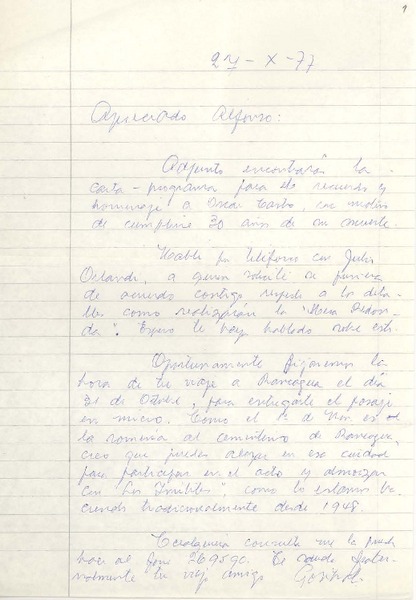 9
24 - X - 77
Apreciado Alfonso:
Adjunto encontrarás la
carta-programa para el recuerdo y
homenaje a Oscar Castro, con motivo
de cumplirse 30 años de su muerte.
Hablé por teléfono con Julio
Orlandi, a quien solicité se pusiera
de acuerdo contigo respecto a los deta-
lles como realizarán la "Mesa Redon-
da". Espero te haya hablado sobre esto.
Oportunamente fijaremos la
hora de tu viaje a Rancagua el día
31 de Octubre, para entregarte el pasaje
en micro. Como el 1º de Nov. es
la romería al cementerio de Rancagua,
creo que puedes alojar en esa ciudad
para participar en el acto y almorzar
con "Los Inútiles", como lo estamos ha-
ciendo tradicionalmente desde 1948.
Cualquiera consulta me la puedes
hacer al fono 269590. Te saluda frater-
nalmente tu viejo amigo